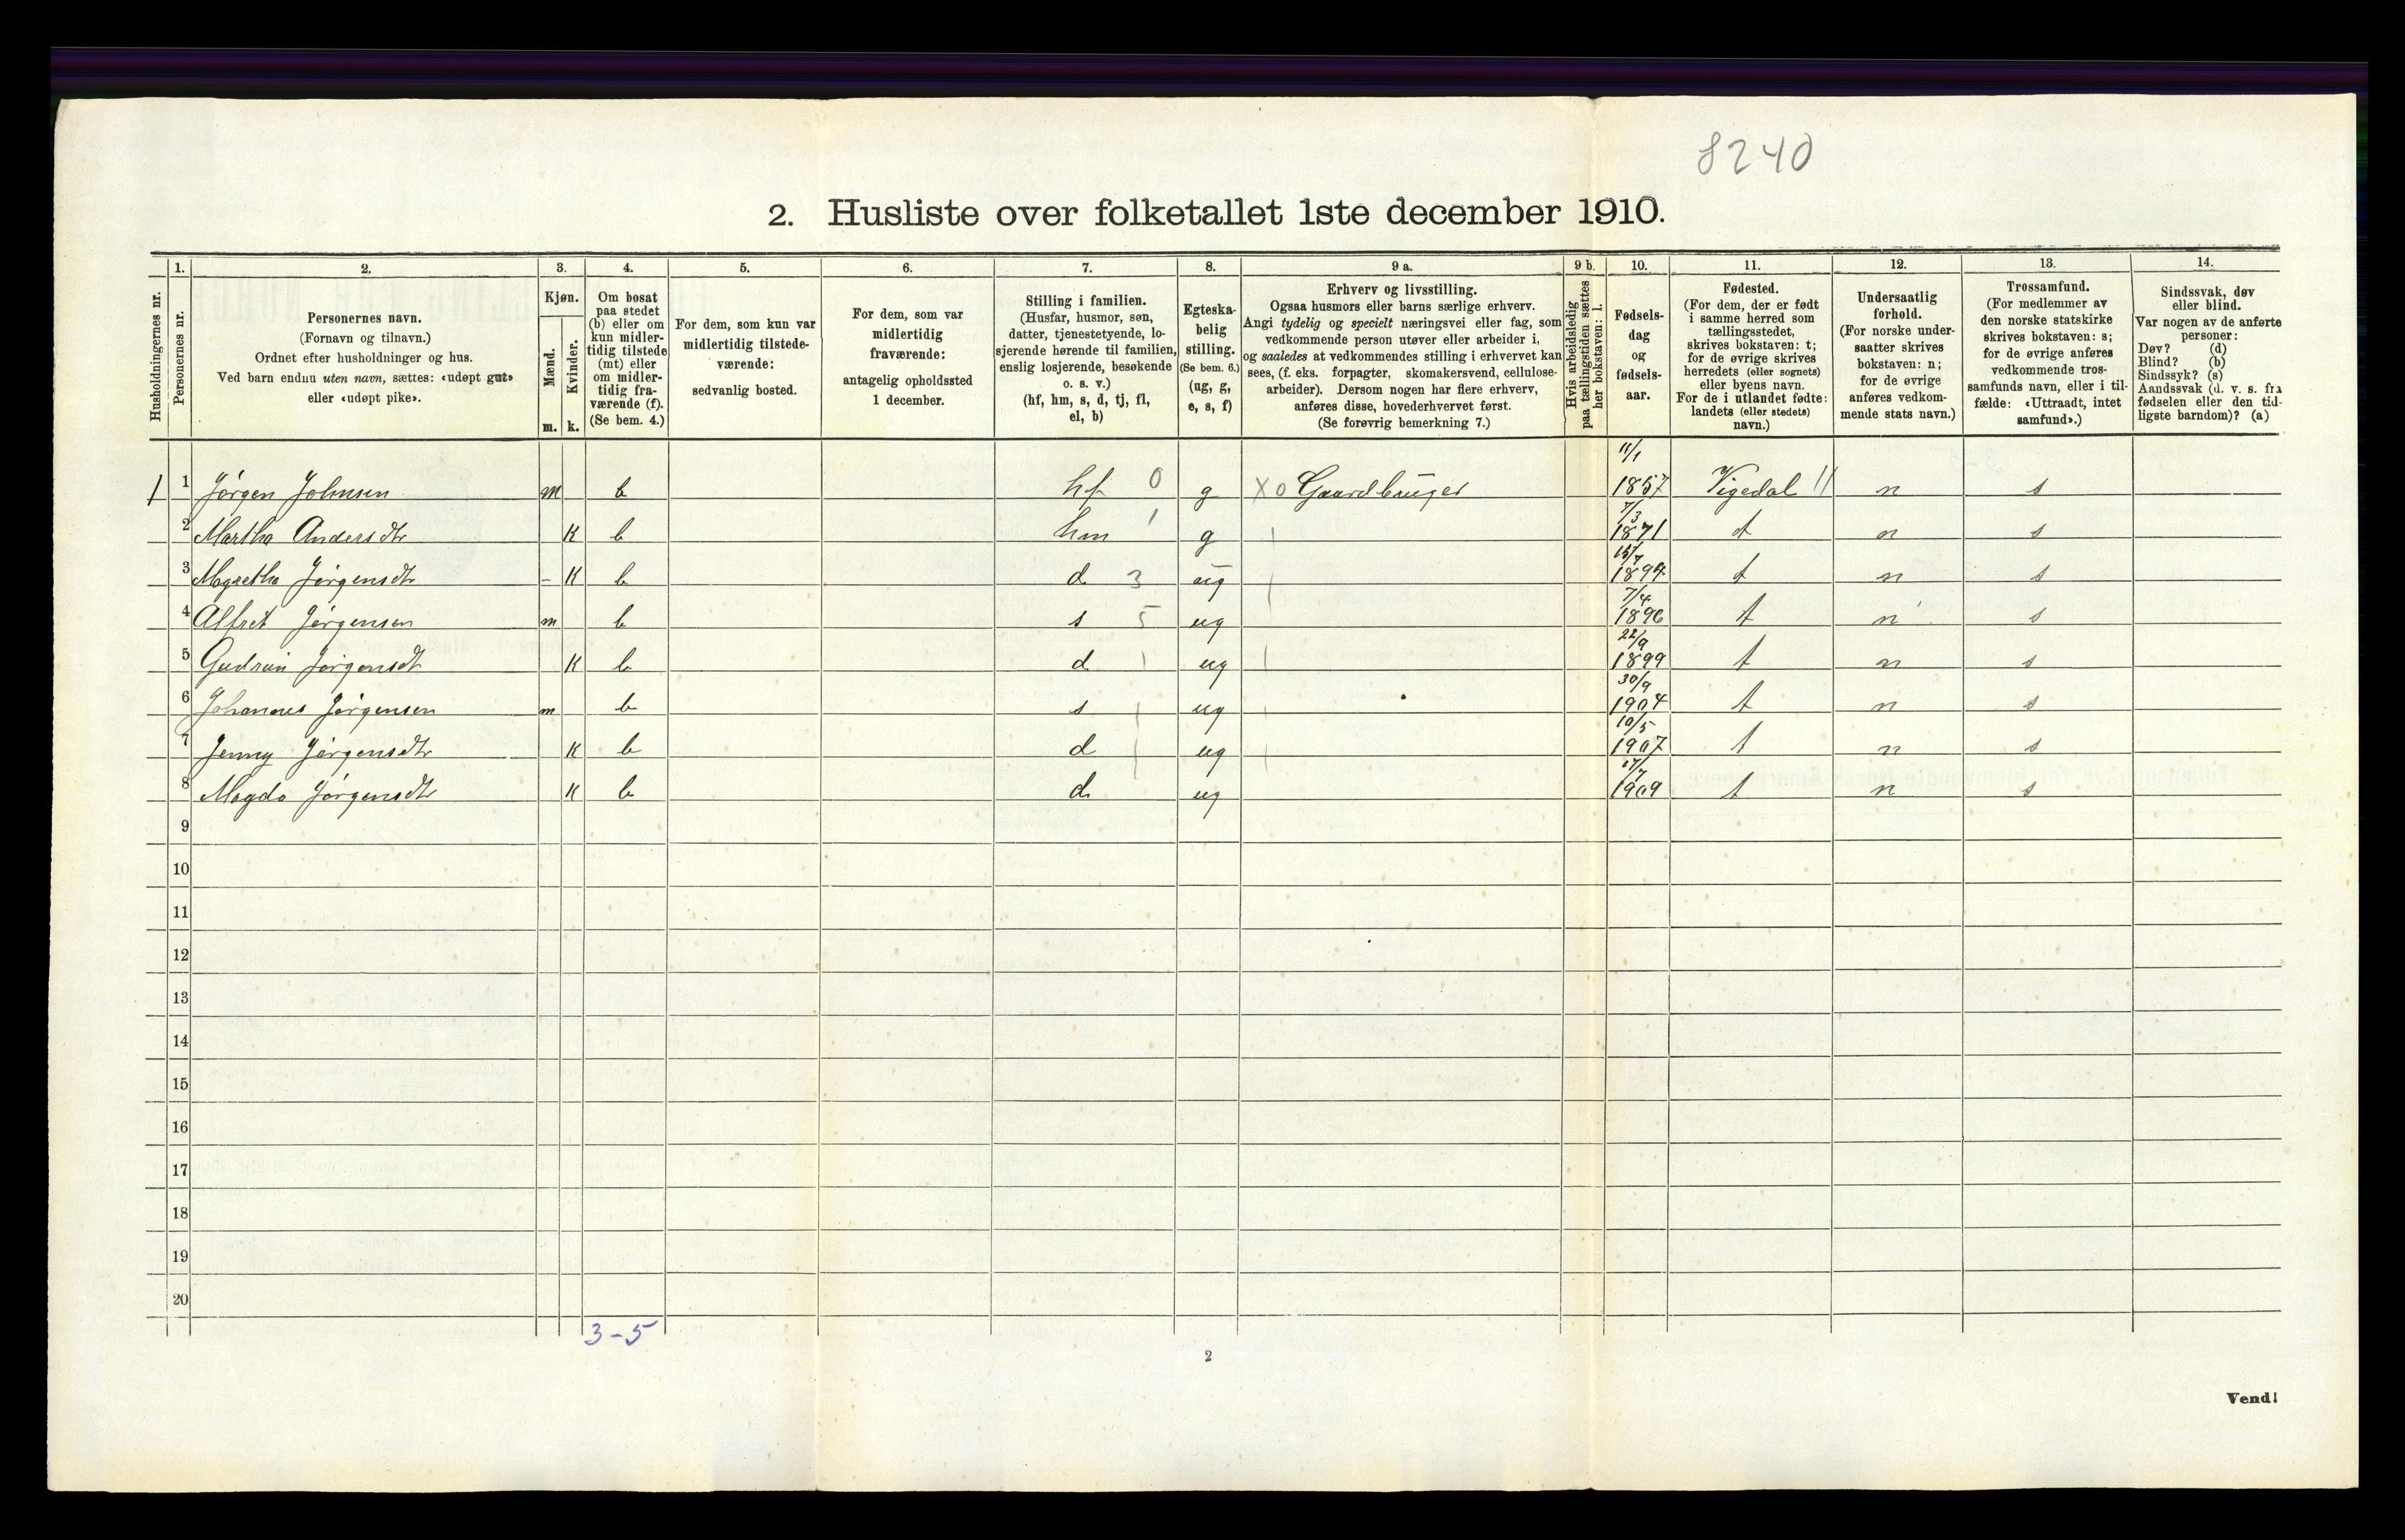 8240
2. Husliste over folketallet 1ste december 1910.
Husholdningernes nr.
1. Personernes nr.
2. Personernes navn.
(Fornavn og tilnavn.)
Ordnet efter husholdninger og hus.
Ved barn endnu uten navn, sættes: «udøpt gut»
eller «udøpt pike».
3. Kjøn.
Mænd. m.
Kvinder. k.
4. Om bosat
paa stedet
(b) eller om
kun midler-
tidig tilstede
(mt) eller
om midler-
tidig fra-
værende (f).
(Se bem. 4.)
5. For dem, som kun var
midlertidig tilstede-
værende:
sedvanlig bosted.
6. For dem, som var
midlertidig
fraværende:
antagelig opholdssted
1 december.
7. Stilling i familien.
(Husfar, husmor, søn,
datter, tjenestetyende, lo-
sjerende hørende til familien,
enslig losjerende, besøkende
o. s. v.)
(hf, hm, s, d, tj, fl,
el, b)
8. Egteska-
belig
stilling.
(Se bem. 6.)
(ug, g,
e, s, f)
9 a. Erhverv og livsstilling.
Ogsaa husmors eller barns særlige erhverv.
Angi tydelig og specielt næringsvei eller fag, som
vedkommende person utøver eller arbeider i,
og saaledes at vedkommendes stilling i erhvervet kan
sees, (f. eks. forpagter, skomakersvend, cellulose-
arbeider). Dersom nogen har flere erhverv,
anføres disse, hovederhvervet først.
(Se forøvrig bemerkning 7.)
9 b. Hvis arbeidsledig
paa tællingstiden sættes
her bokstaven: l.
10. Fødsels-
dag
og
fødsels-
aar.
11. Fødested.
(For dem, der er født
i samme herred som
tællingsstedet,
skrives bokstaven: t;
for de øvrige skrives
herredets (eller sognets)
eller byens navn.
For de i utlandet fødte:
landets (eller stedets)
navn.)
12. Undersaatlig
forhold.
(For norske under-
saatter skrives
bokstaven: n;
for de øvrige
anføres vedkom-
mende stats navn.)
13. Trossamfund.
(For medlemmer av
den norske statskirke
skrives bokstaven: s;
for de øvrige anføres
vedkommende tros-
samfunds navn, eller i til-
fælde: «Uttraadt, intet
samfund».)
14. Sindssvak, døv
eller blind.
Var nogen av de anførte
personer:
Døv? (d)
Blind? (b)
Sindssyk? (s)
Aandssvak (d. v. s. fra
fødselen eller den tid-
ligste barndom)? (a)
1 1 Jørgen Johnsen m b hf 0 g X0 Gaardbruger 11/1 1857 Vigedal n s
2 Martha Andersdtr K b hm 1 g 7/3 1871 t n s
3 Magretha Jørgensdtr - K b d 3 ug 1894 t n s
4 Alfret Jørgensen m b s 5 ug 7/4 1896 t n s
5 Gudrun Jørgensdt K b d ug 22/9 1899 t n s
6 Johannes Jørgensen m b s ug 30/9 1904 t n s
7 Jenny Jørgensdtr K b d ug 10/5 1907 t n s
8 Magda Jørgensdtr K b d ug 1909 t n s
9
10
11
12
13
14
15
16
17
18
19
20
3-5
2
Vend!